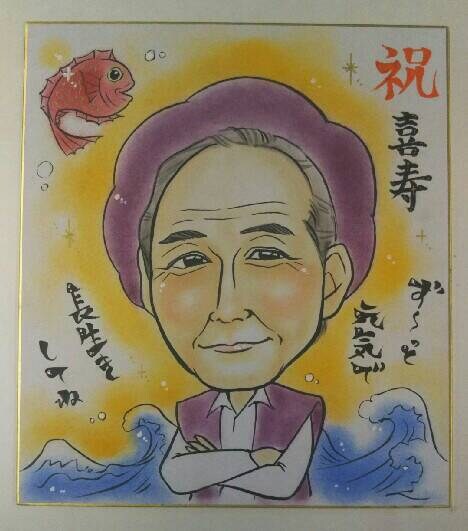 祝
喜寿
ず〜っと
元気で
長生き
してね